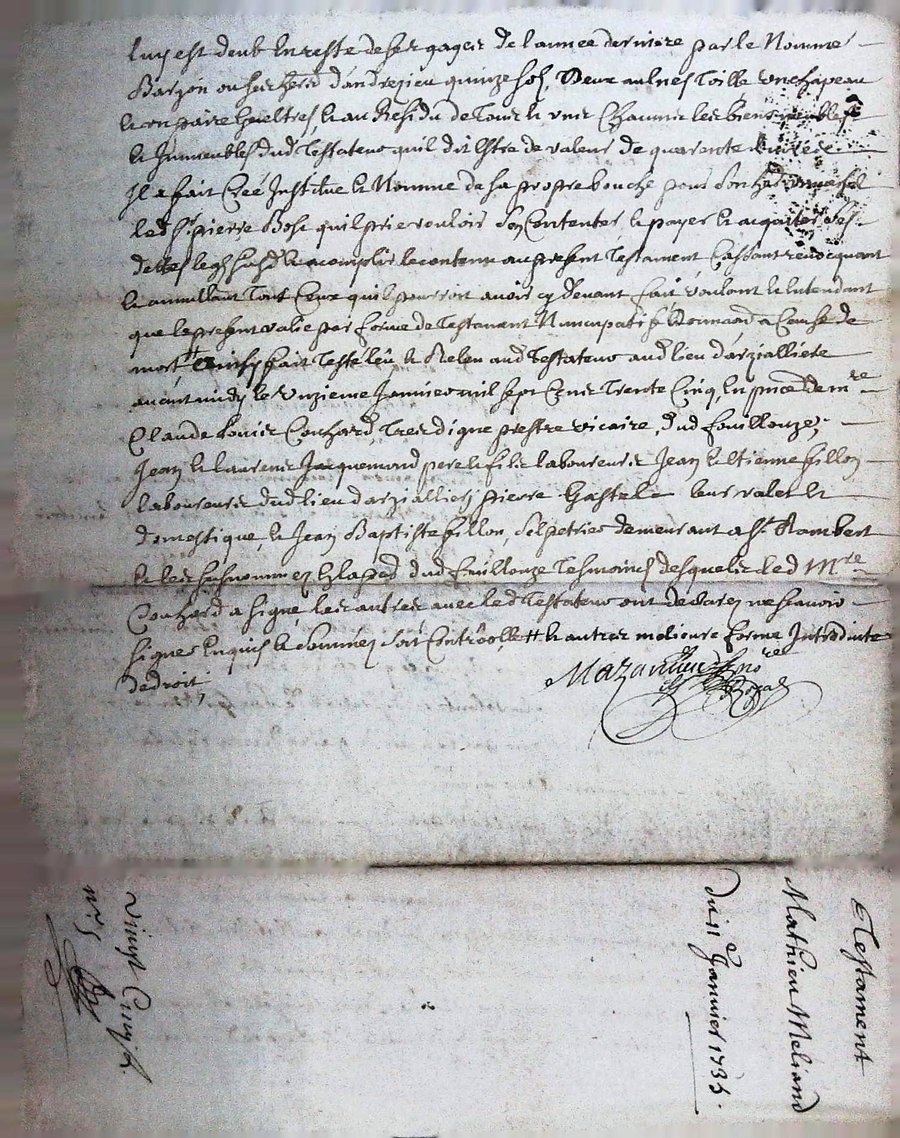 luy est deub en reste de ses gages de l'annee derniere par le Nomme
Barjon ou ses hers d'andrejieu quinze sols, Deux aulnes Toille un chapeau
et au Residu de Tous et uns Chacuns les biens meubles
et Immeubles dud Testateur qu'il dit Estre de valeur de quarente livres
Il a fait Créé Institué et Nommé de sa propre bouche pour son her universel
led Sr pierre Bose qu'il prie vouloir s'en Contenter, et payer et acquiter ses
dettes legs susd et acomplir le contenu au present Testament Cassant revocquant
et annullant Tout Ceux qu'il pourroit avoir cy devant fait voulant et Entendant
que le present valie par forme de Testament Nuncupatif Donnaon a Cause de
mort Ainsy fait Testé leu et Releu aud Testateur aud lieu d'arzialliere
avant midy le Unzieme Janvier mil sept Cens Trente Cinq, En pnce de mre
Claude Louis Couhard, Tres digne prestre vicaire, dud fouillouze;
Jean et laurens Jacquemond pere et fils laboureurs Jean et Etienne fillon
laboureurs dud lieu d'arzialliers pierre leur valet et
domestique, et Jean Baptiste fillon, Salpetrier demeurant a St Rambert
et les susnommez dud fouillouze Tesmoins desquels led Mre
Couhard a signé, les autres avec led Testateur ont declarez ne scavoir
signer Enquis et sommez soit Controollé et autres melioure forme Introduite
de droit;
no
Royal
Testament
Mathieu Meliand
du 11 Janvier 1735.
Vingt Cinq s.